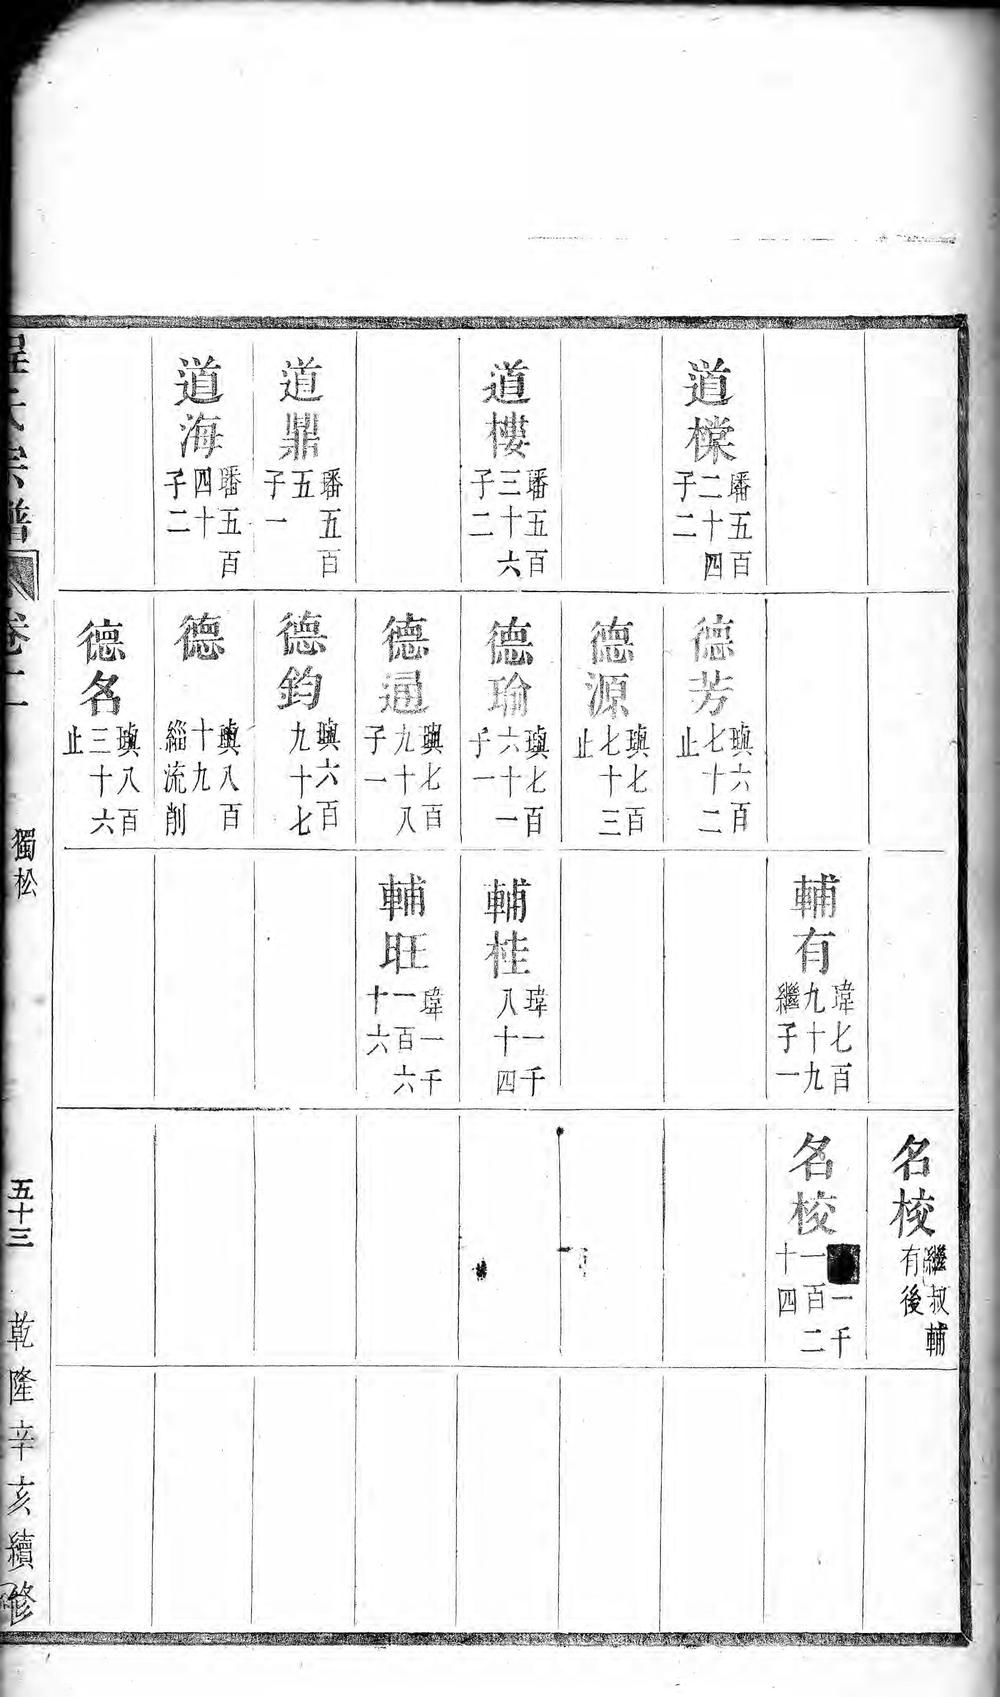 道橖
璠五百
二十四
子二
道樓
璠五百
三十六
子二
道鼎
璠五百
五
子一
道海
璠五百
四十
子二
德芳
璵六百
七十二
止
德源
璵七百
七十三
止
德瑜
璵七百
六十一
子一
德通
璵七百
九十八
子一
德鈞
璵六百
九十七
德
璵八百
十九
緇流削
德名
璵八百
三十六
止
輔有
瑋七百
九十九
繼子一
輔桂
瑋一千
八十四
輔旺
瑋一千
一百六
十六
名校
繼叔輔
有後
名校
一千
一百二
十四
程氏宗譜
卷二
獨松
五十三
乾隆辛亥續修